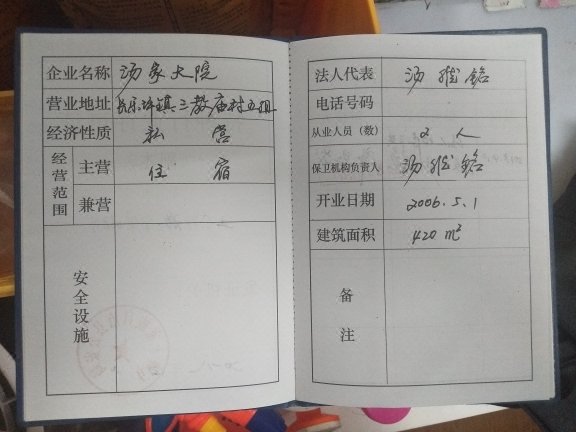 企业名称 汤家大院
营业地址 长乐坪镇三教庙村五组
经济性质 私营
经营范围 主营 住宿
兼营
安全设施
法人代表 汤
电话号码
从业人员（数） 2人
保卫机构负责人 汤
开业日期 2006.5.1
建筑面积 420 m²
备注